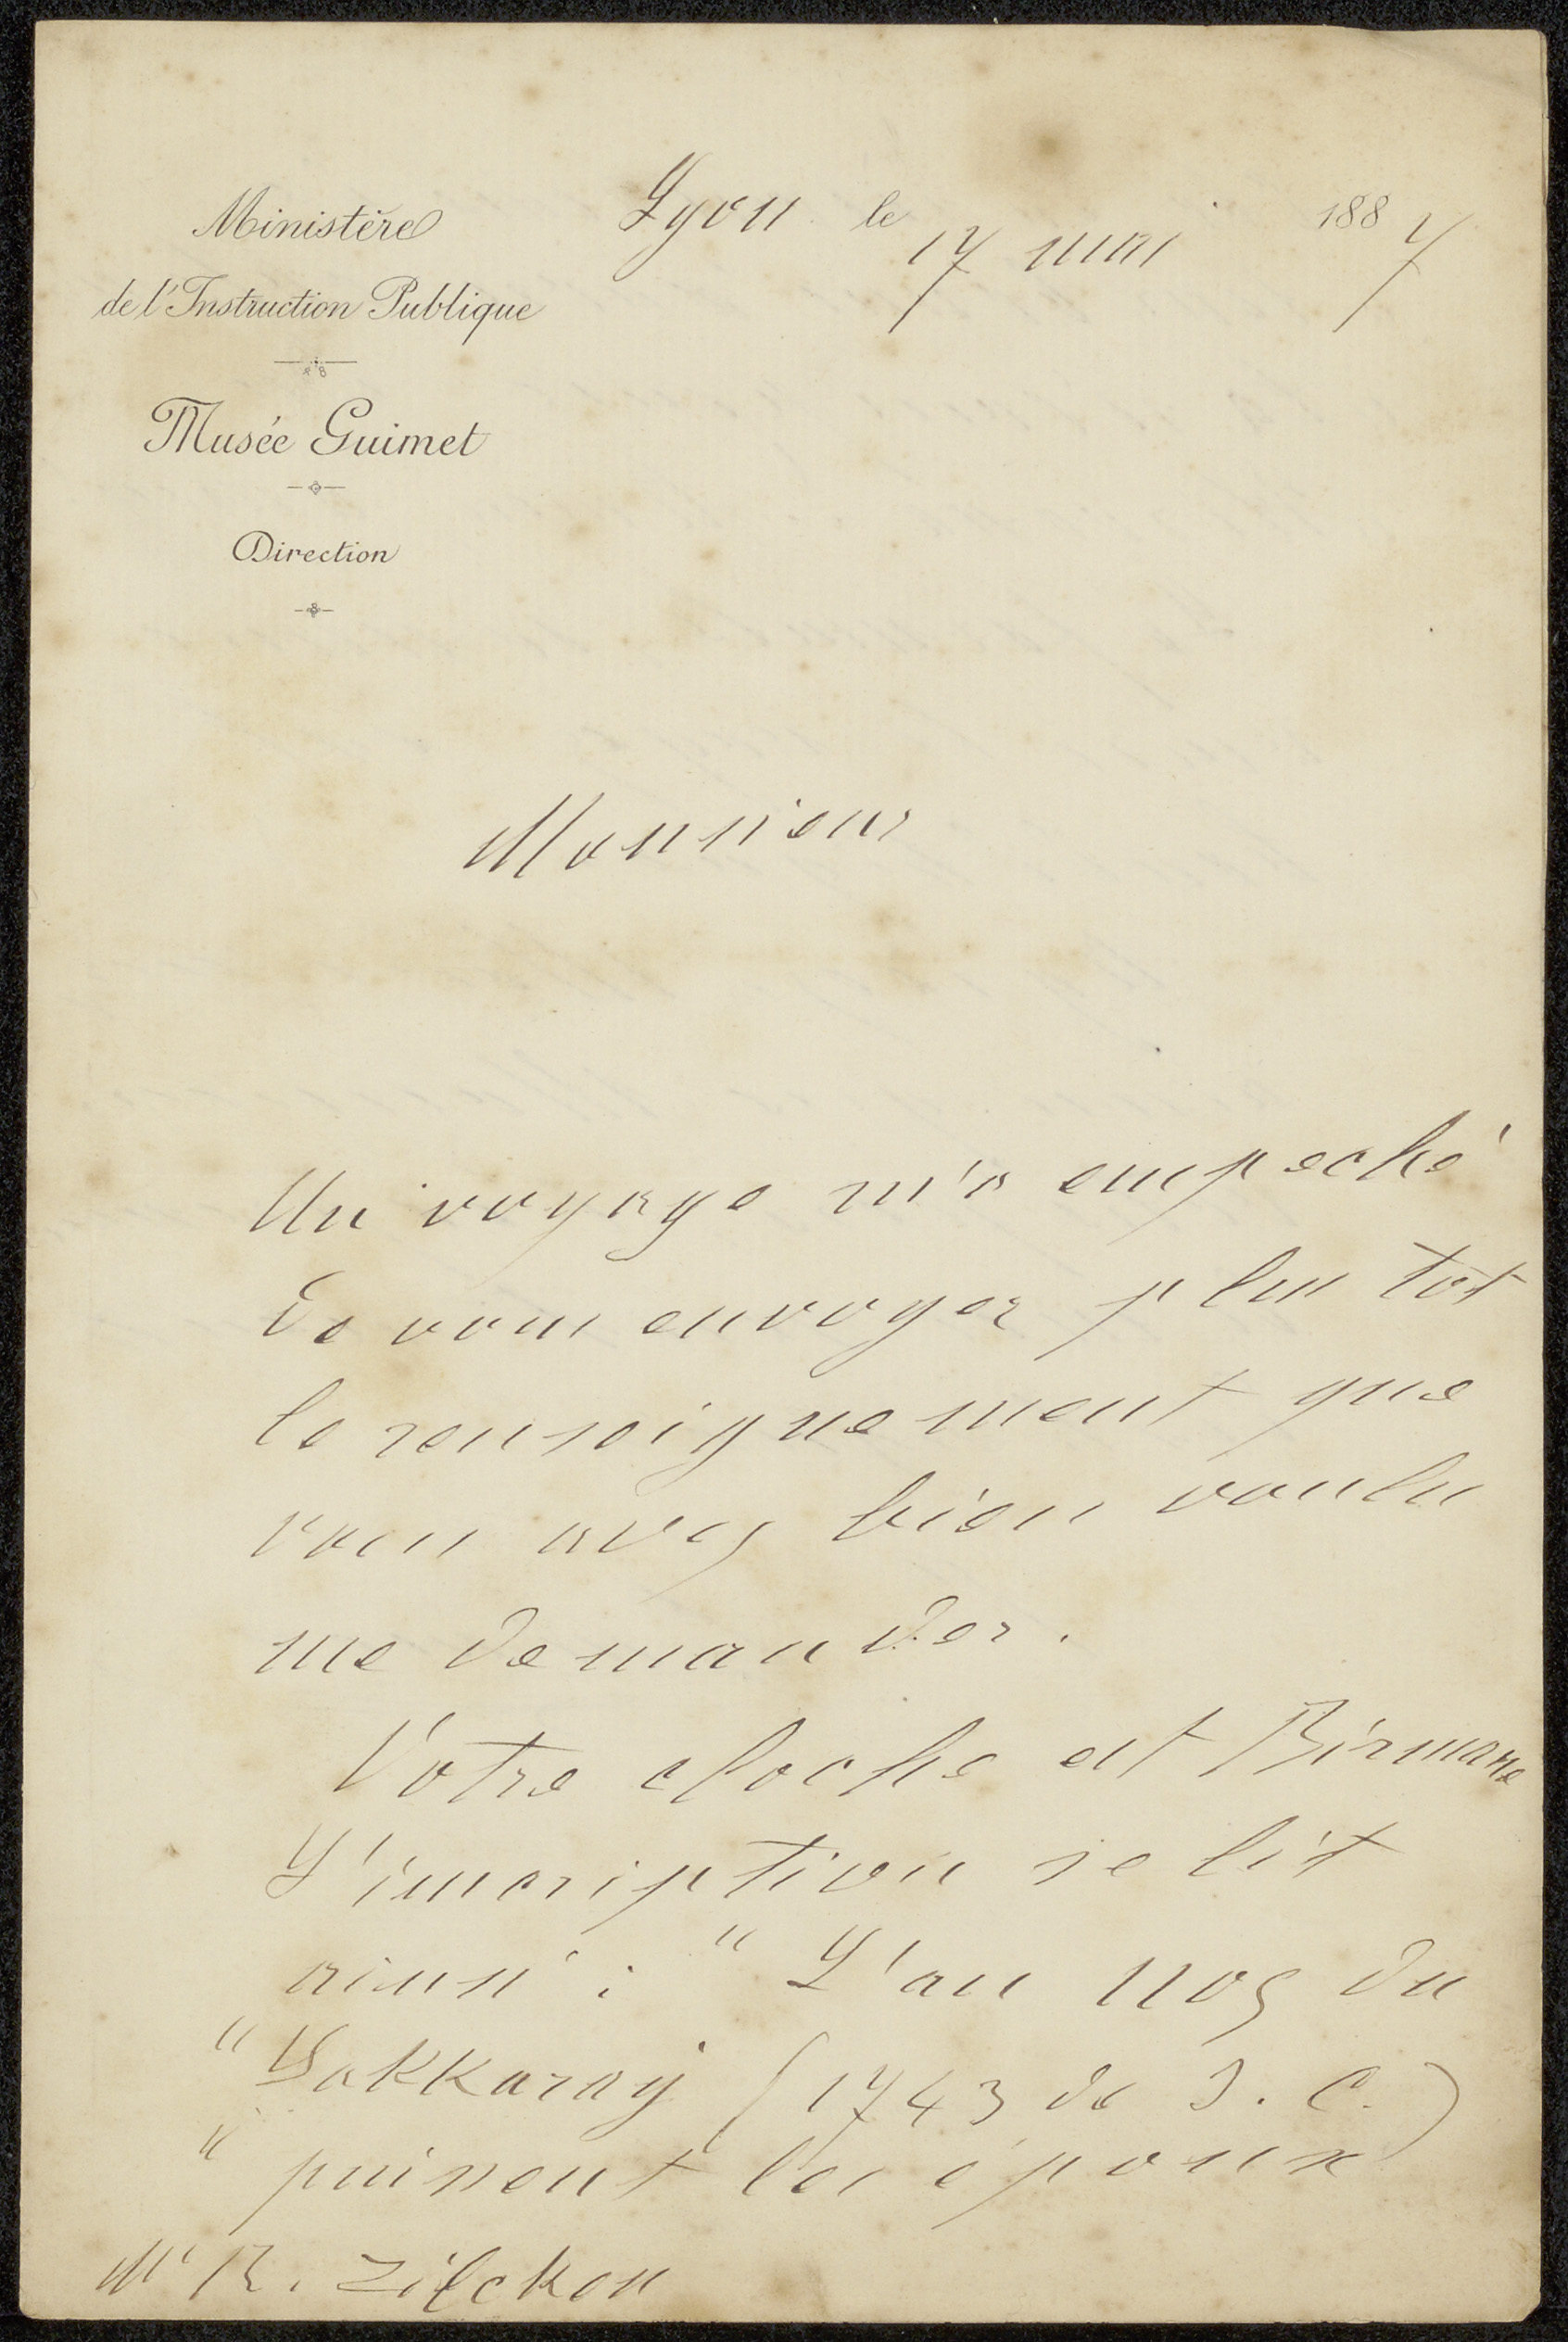 Ministère
de l'Instruction Publique
Musée Guimet
Direction
Lyon le 17 mai 1887
Monsieur
Un voyage m'a empeché
de vous envoyer plus tot
le renseignement que
vous avez bien voulu
me demander.
Votre cloche est Birmane
L'inscription se lit
ainsi : " L'an 1105 du
" Sakkaray (1743 de J. C.)
" puissent les époux
Mr R. Zilcken